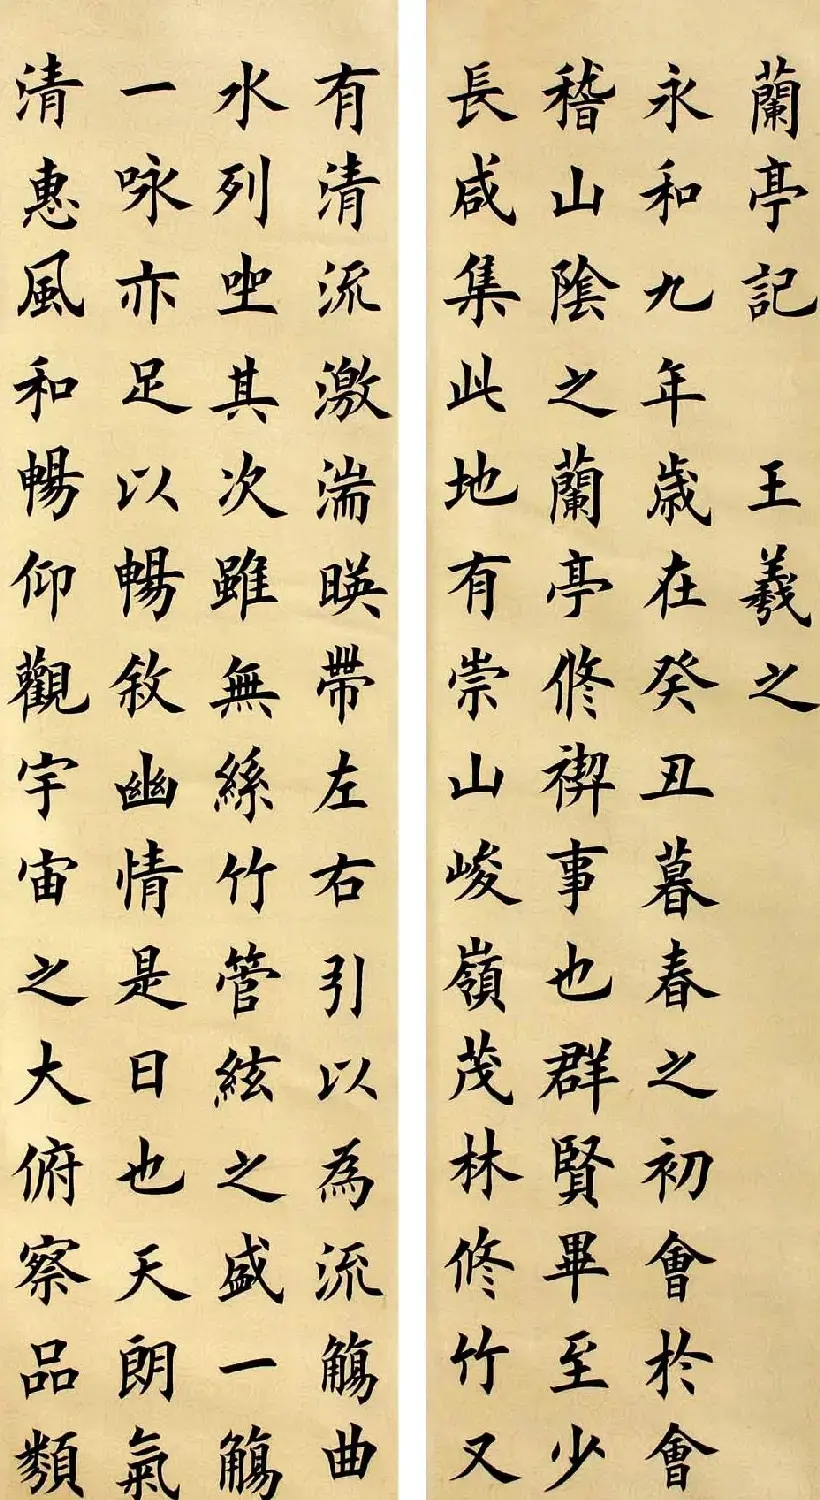 蘭亭記 王羲之
永和九年歳在癸丑暮春之初會於會
稽山陰之蘭亭修禊事也群賢畢至少
長咸集此地有崇山峻嶺茂林修竹又
有清流激湍暎帶左右引以為流觴曲
水列坐其次雖無絲竹管絃之盛一觴
一咏亦足以暢敘幽情是日也天朗氣
清惠風和暢仰觀宇宙之大俯察品類